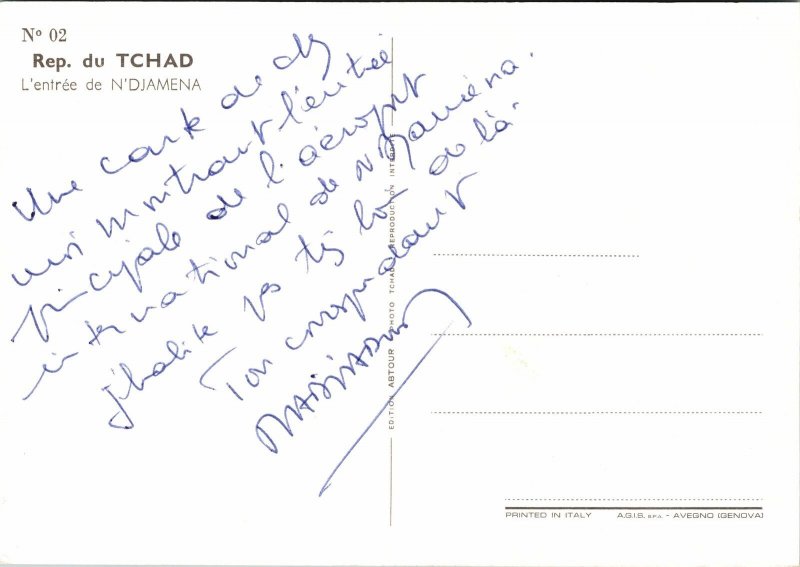 Nº 02
Rep. du TCHAD
L'entrée de N'DJAMENA
Une carte de chez
moi montrant l'entrée
principale de l'aéroport
international de N'Djaména.
j'habite pas très loin de là.
Ton correspondant
EDITION ABTOUR - PHOTO TCHAD - REPRODUCTION INTERDITE
PRINTED IN ITALY
A.G.I.S. S.P.A. - AVEGNO (GENOVA)